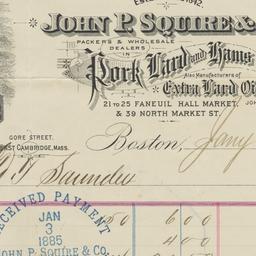 ESTABLISHED 1842.
JOHN P. SQUIRE &
PACKERS & WHOLESALE
DEALERS IN
Pork Lard and Hams
Also Manufacturers of
Extra Lard Oi
21 TO 25 FANEUIL HALL MARKET,
& 39 NORTH MARKET ST.
GORE STREET,
EAST CAMBRIDGE, MASS.
Boston, Jany
Saunders
RECEIVED PAYMENT
JAN
3
1885
JOHN P. SQUIRE & Co.
50 600
400